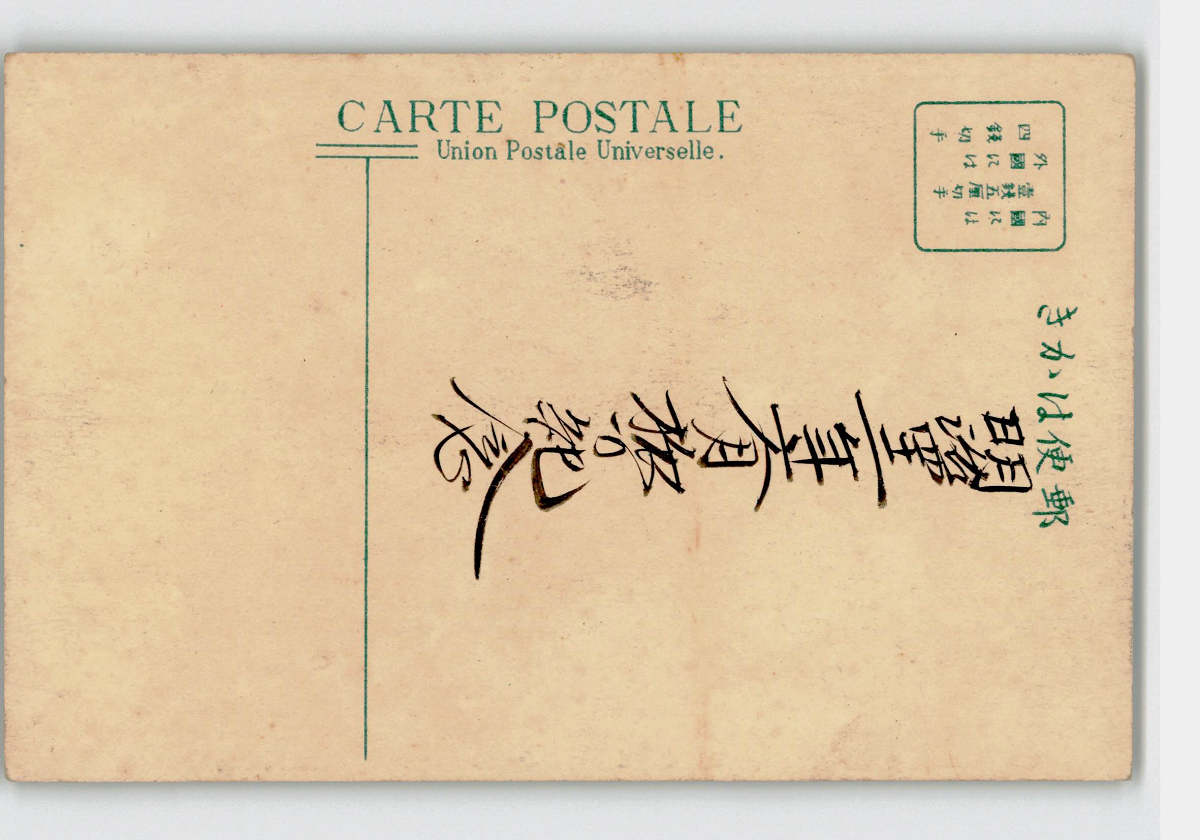 CARTE POSTALE
Union Postale Universelle.
内國には
壹錢五厘切手
外國には
四錢切手
郵便はかき
明治四十一年六月 紀念